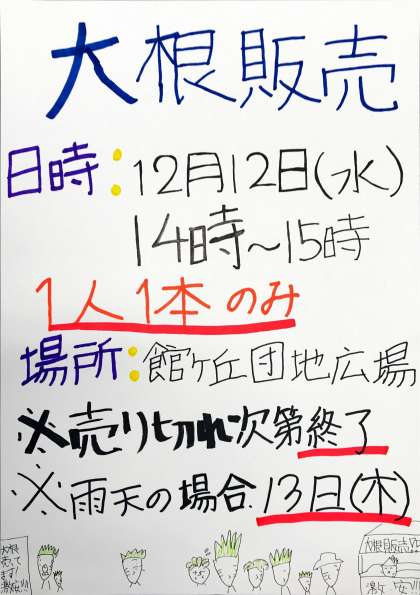 大根販売
日時:12月12日(水)
14時~15時
1人1本のみ
場所:館ヶ丘団地広場
※売り切れ次第終了
※雨天の場合.13日(木)
大根
売って
ます!
激安!!!
大根販売!!
激安!!!